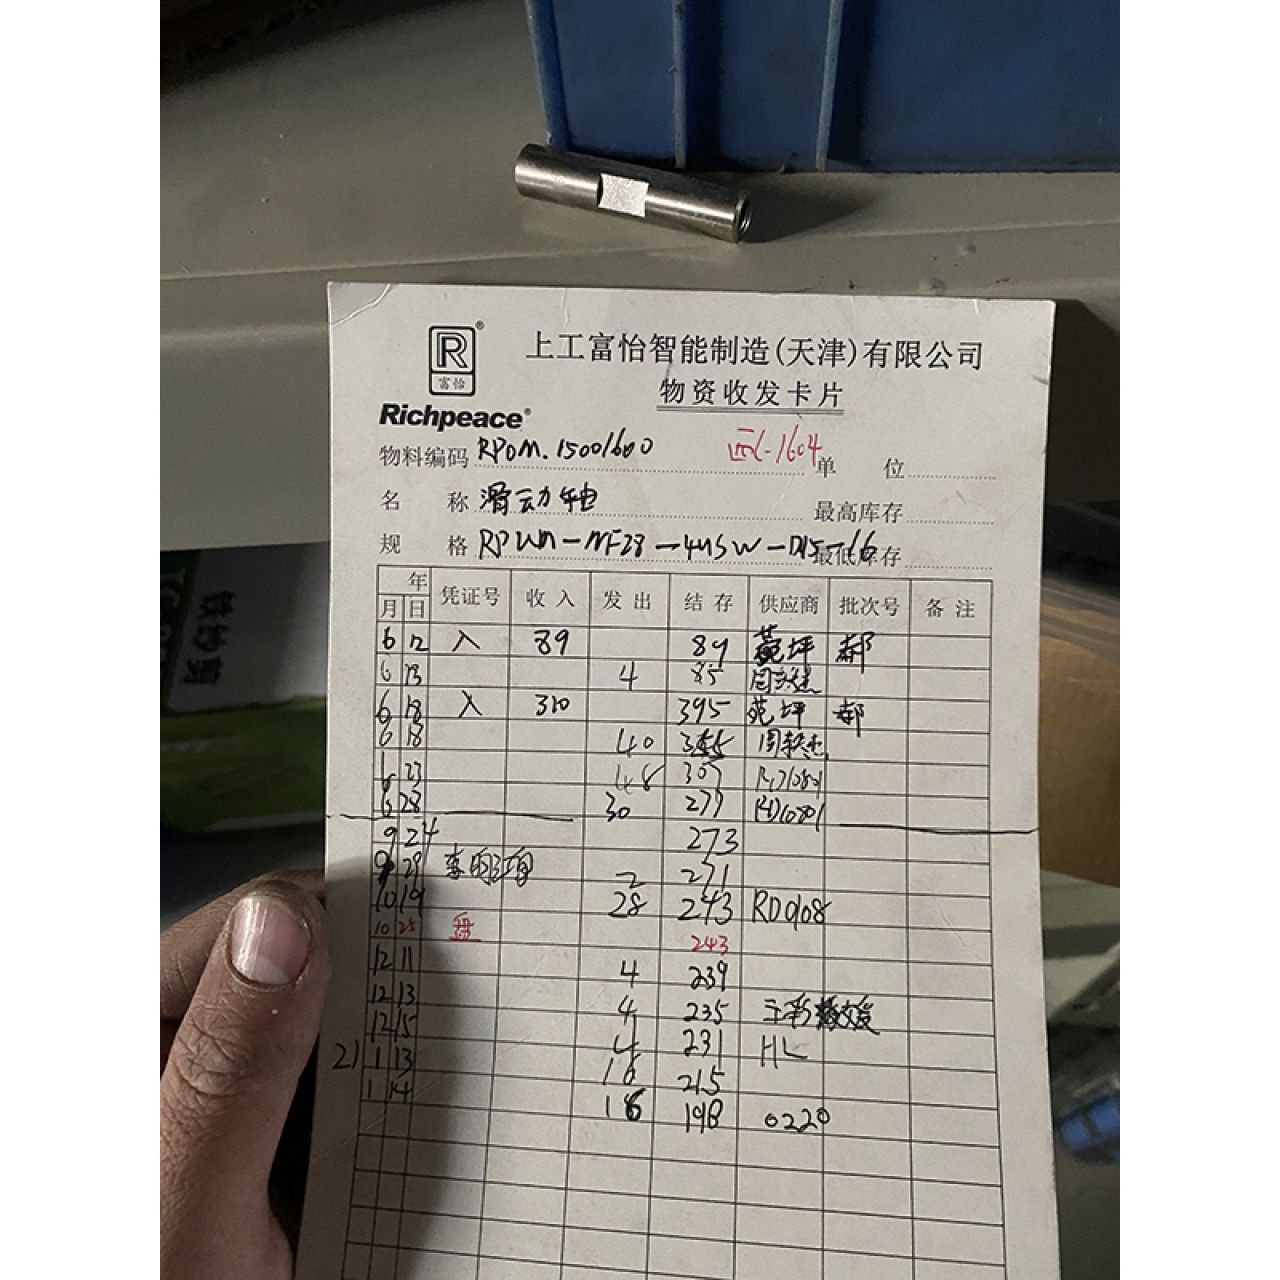 R®
富怡
Richpeace®
上工富怡智能制造(天津)有限公司
物资收发卡片
物料编码 RPDM.15001600 -1604 单 位
名 称 滑动轴 最高库存
规 格 RPWM-NF28-4USW-D15-16 最低库存
年 月 日 凭证号 收入 发出 结存 供应商 批次号 备注
6 12 入 89 89 郝
6 13 4 85
6 18 入 310 395 苑坪 郝
6 18 40 355
23 48 307
6 28 30 277
9 24 273
9 29 2 271
10 19 28 243 RD0908
10 25 盘 243
12 11 4 239
12 13 4 235
12 15 4 231 HL
21 1 13 16 215
1 14 198 0220